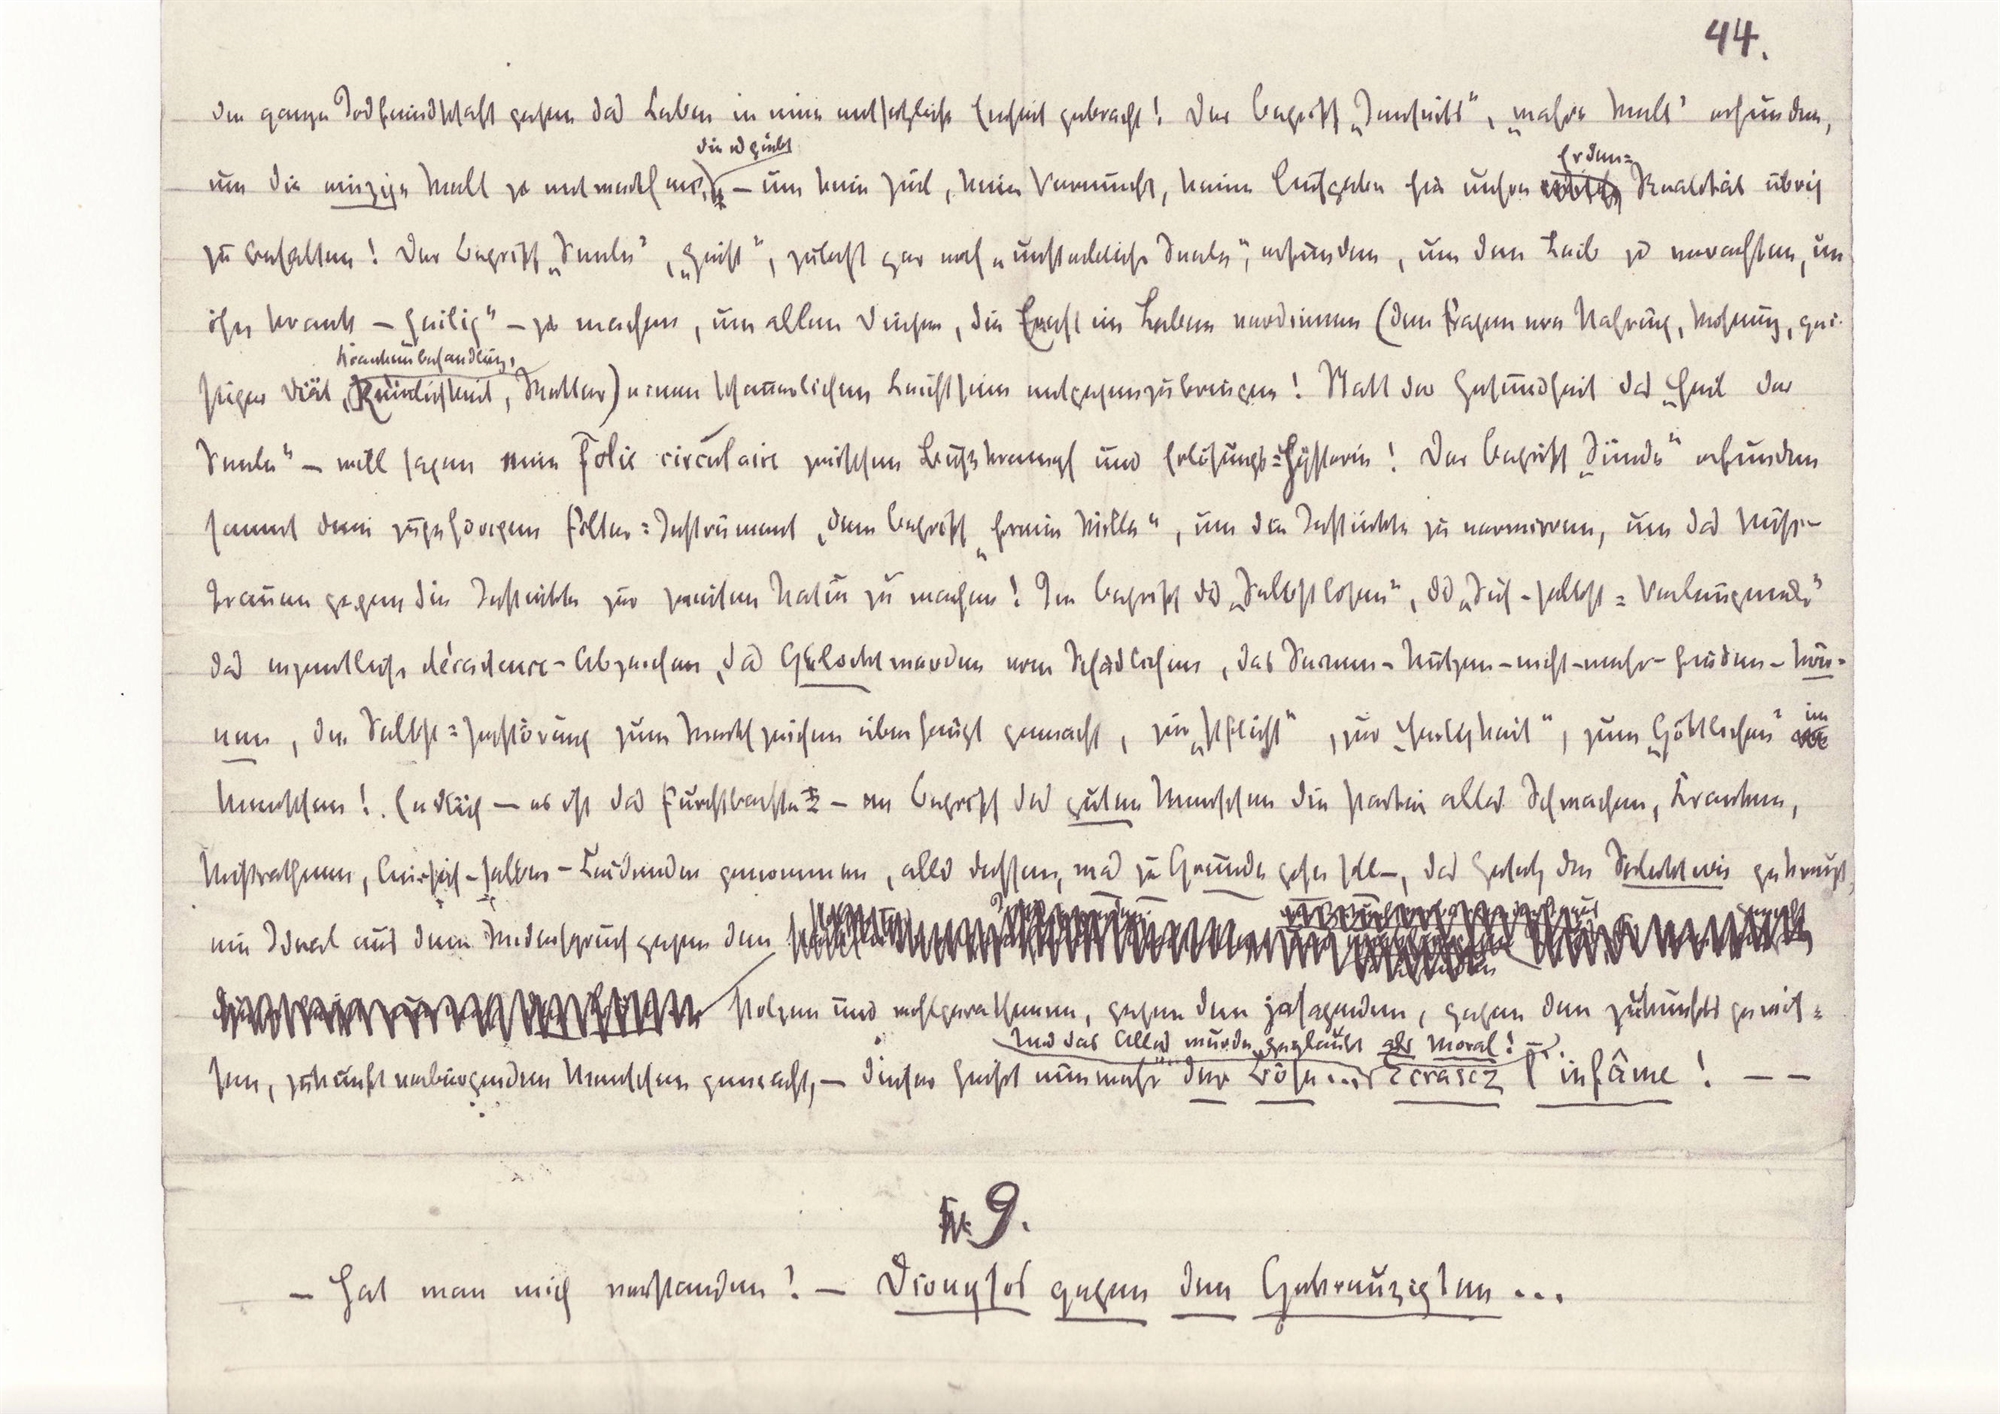 44.
die ganze Todfeindschaft gegen das Leben in eine entsetzliche Einheit gebracht! Der Begriff „Jenseits“, „wahre Welt“ erfunden,
die es giebt
Erden=
um die einzige Welt zu entwerthen, – um kein Ziel, keine Vernunft, keine Aufgabe für unsre Realität übrig
zu behalten! Der Begriff „Seele“, „Geist“, zuletzt gar noch „unsterbliche Seele“, erfunden, um den Leib zu verachten, um
ihn krank – „heilig“ – zu machen, um allen Dingen, die Ernst im Leben verdienen (den Fragen von Nahrung, Wohnung, gei-
Krankenbehandlung,
stiger Diät, Reinlichkeit, Wetter) einen schauerlichen Leichtsinn entgegenzubringen! Statt der Gesundheit das „Heil der
Seele“ – will sagen eine folie circulaire zwischen Bußkrampf und Erlösungs=Hysterie! Der Begriff „Sünde“ erfunden
sammt dem zugehörigen Folter=Instrument, dem Begriff „freier Wille“, um die Instinkte zu verwirren, um das Miß-
trauen gegen die Instinkte zur zweiten Natur zu machen! Im Begriff des „Selbstlosen“, des „Sich-selbst=Verleugnenden“
das eigentliche décadence-Abzeichen, das Gelocktwerden vom Schädlichen, das Seinen-Nutzen-nicht-mehr-finden-kön=
nen, die Selbst=Zerstörung zum Werthzeichen überhaupt gemacht, zur „Pflicht“, zur „Heiligkeit“, zum „Göttlichen“ im
Menschen! Endlich – es ist das Furchtbarste – im Begriff des guten Menschen die Partei alles Schwachen, Kranken,
Mißrathnen, An-sich-selber-Leidenden genommen, alles dessen, was zu Grunde gehn soll –, das Gesetz der Selektion gekreuzt,
ein Ideal aus dem Widerspruch gegen den
stolzen und wohlgerathenen, gegen den jasagenden, gegen den zukunftsgewis=
Und das Alles wurde geglaubt als Moral! –
sen, zukunftverbürgenden Menschen gemacht, – dieser heißt nunmehr der Böse... Ecrasez l’infâme! – –
9.
– Hat man mich verstanden? – Dionysos gegen den Gekreuzigten...